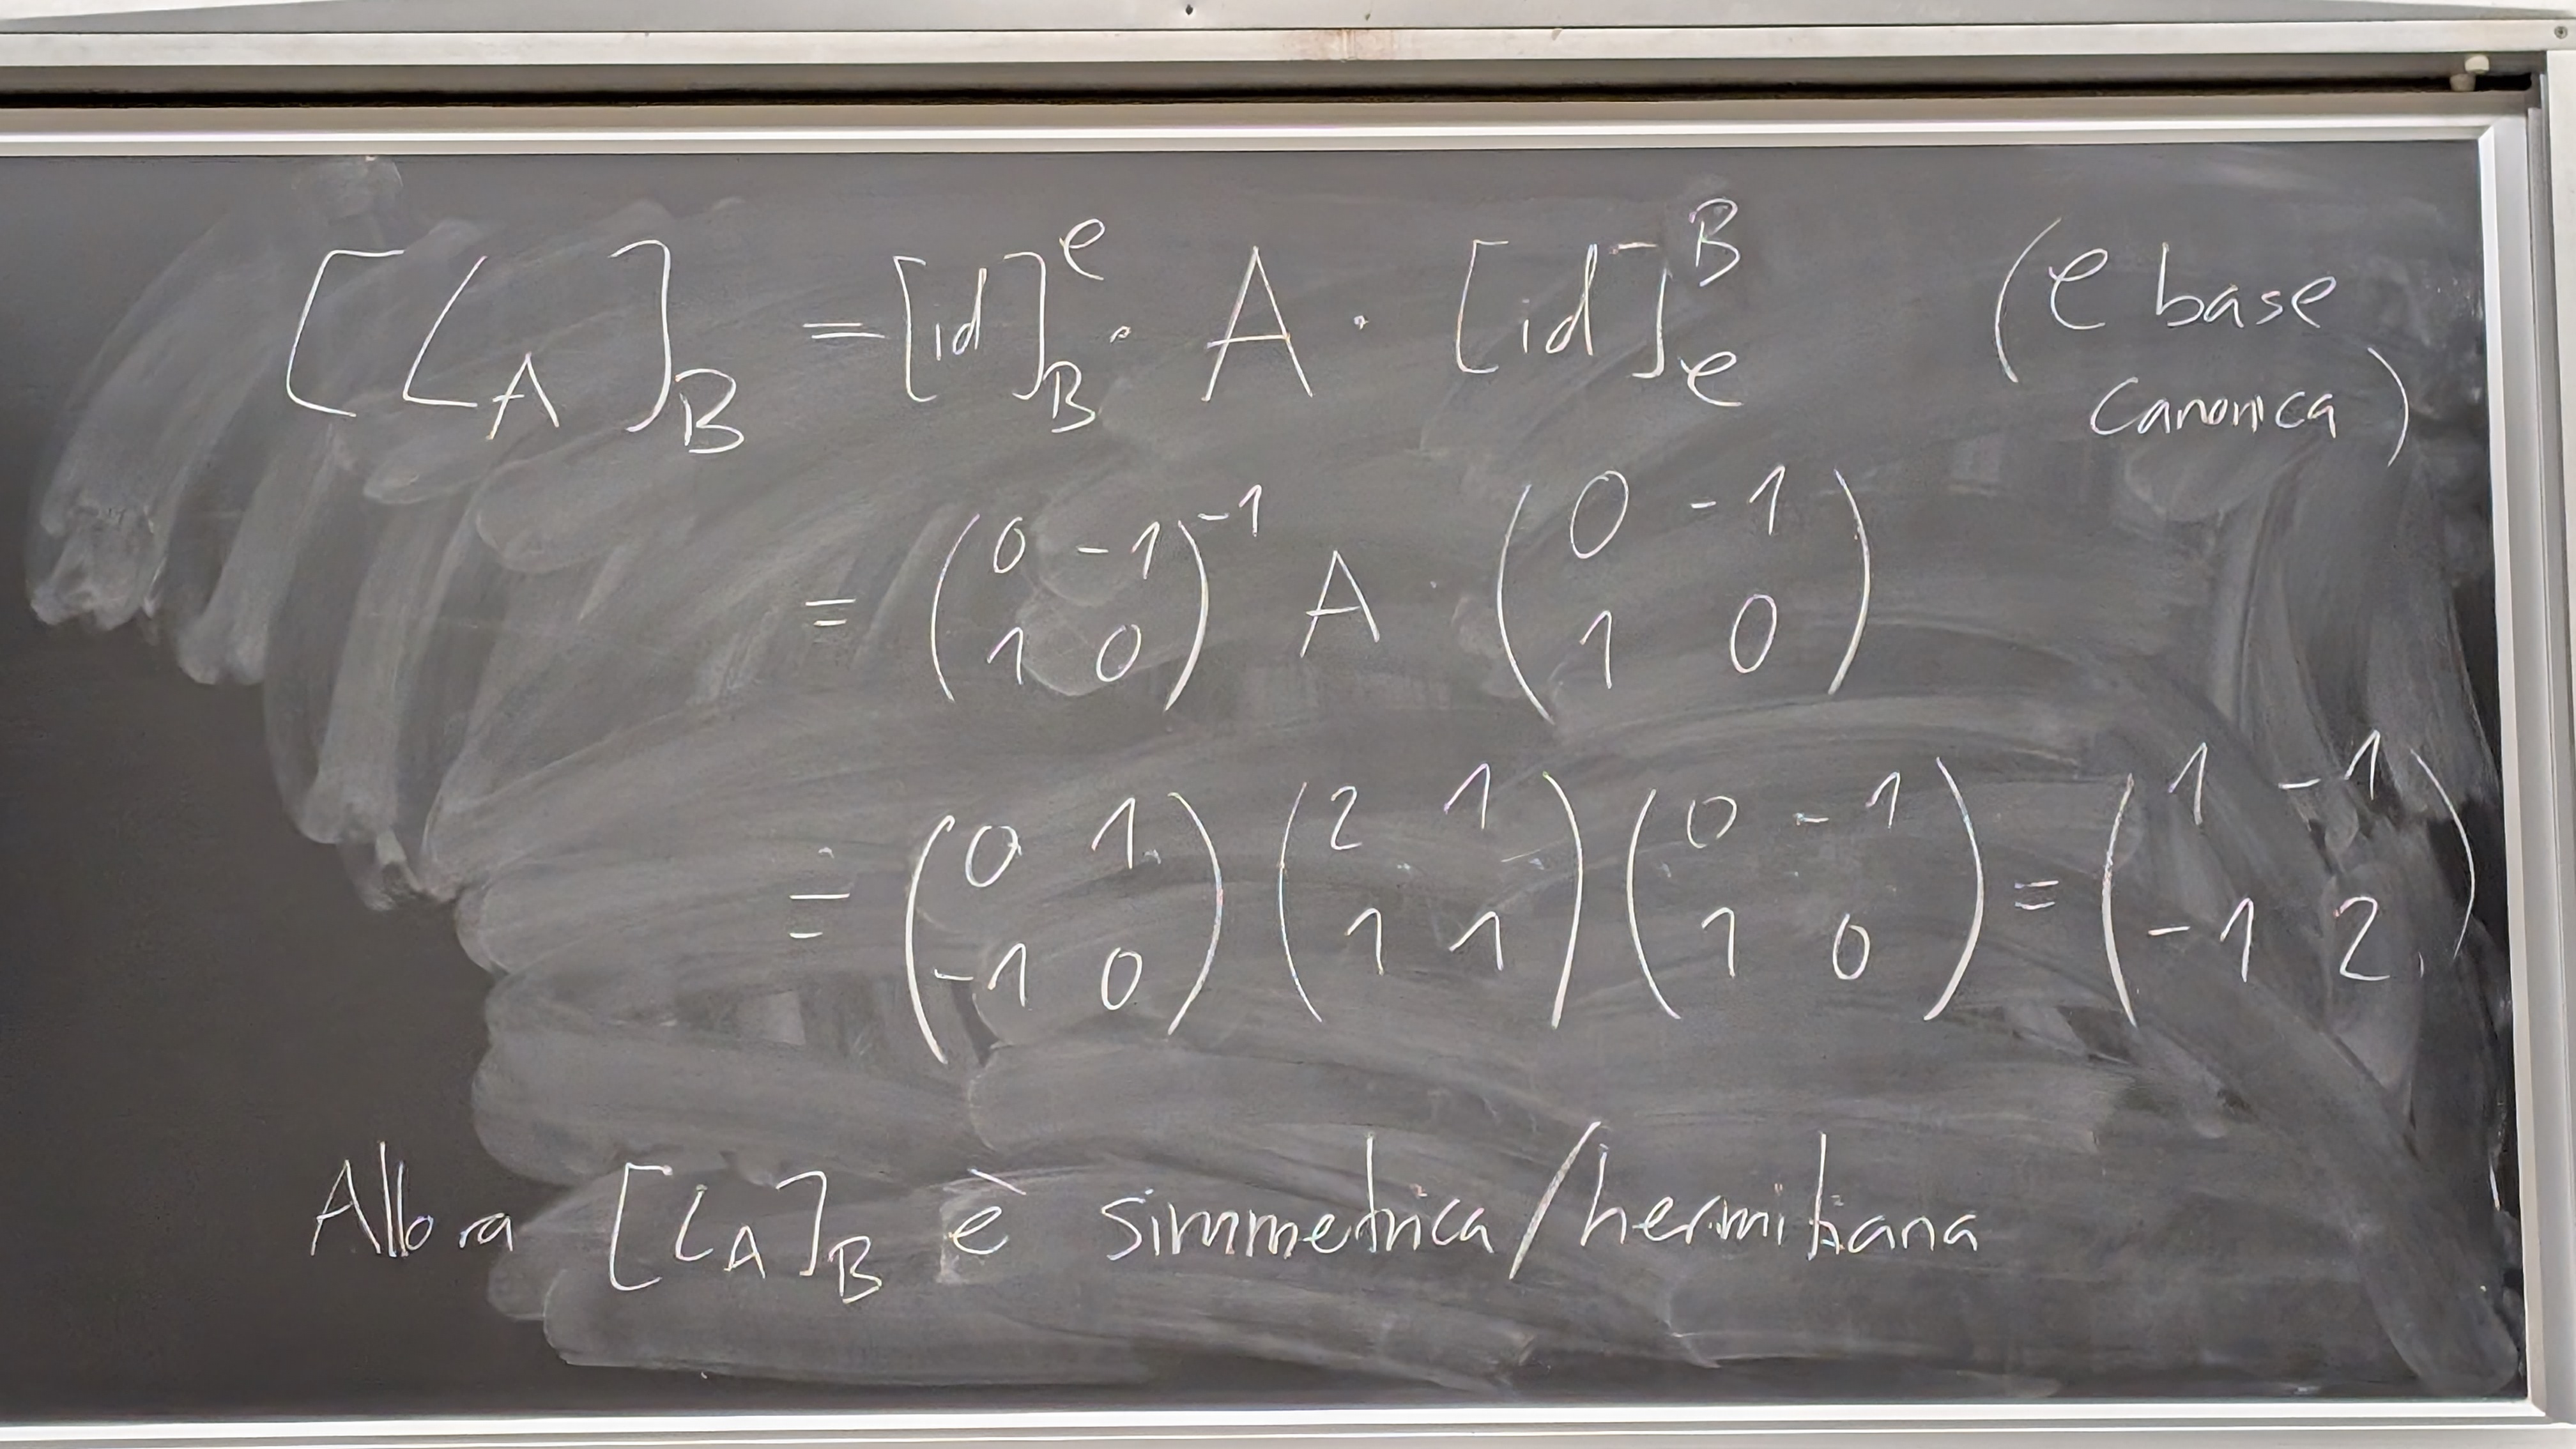 [L_A]_B = [id]_B^e · A · [id]_e^B (e base canonica)
= (0 -1; 1 0)^-1 A · (0 -1; 1 0)
= (0 1; -1 0) (2 1; 1 1) (0 -1; 1 0) = (1 -1; -1 2)
Allora [L_A]_B è simmetrica/hermitiana